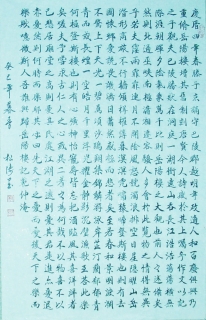 慶曆四年春滕子京謫守巴陵郡越明年政通人和百廢俱興乃
重修岳陽樓增其舊制刻唐賢今人詩賦於其上屬予作文以記
之予觀夫巴陵勝狀在洞庭一湖銜遠山吞長江浩浩湯湯橫無
際涯朝暉夕陰氣象萬千此則岳陽樓之大觀也前人之述備矣
然則北通巫峽南極瀟湘遷客騷人多會於此覽物之情得無異
乎若夫霪雨霏霏連月不開陰風怒號濁浪排空日星隱曜山岳
潛形商旅不行檣傾楫摧薄暮冥冥虎嘯猿啼登斯樓也則有去
國懷鄉憂讒畏譏滿目蕭然感極而悲者矣至若春和景明波瀾
不驚上下天光一碧萬頃沙鷗翔集錦鱗游泳岸芷汀蘭郁郁青
青而或長煙一空皓月千里浮光躍金靜影沉璧漁歌互答此樂
何極登斯樓也則有心曠神怡寵辱偕忘把酒臨風其喜洋洋者
矣嗟夫予嘗求古仁人之心或異二者之為何哉不以物喜不以
己悲居廟堂之高則憂其民處江湖之遠則憂其君是進亦憂退
亦憂然則何時而樂耶其必曰先天下之憂而憂後天下之樂而
樂歟噫微斯人吾誰與歸岳陽樓記范仲淹
癸巳年